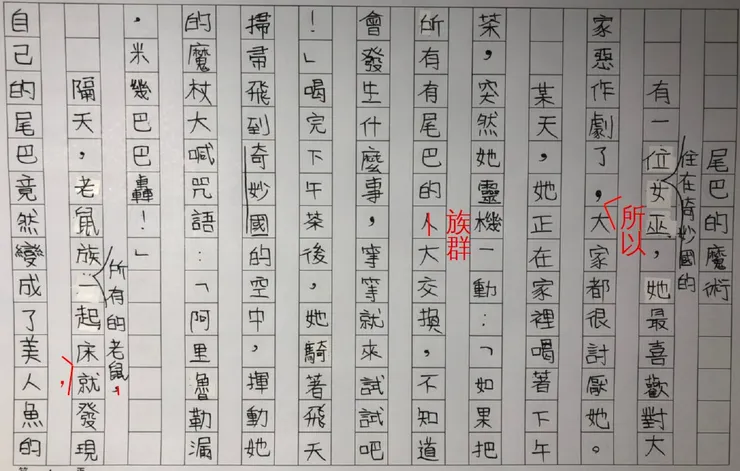 尾巴的魔術
住在奇妙國的
有一位女巫，她最喜歡對大
所以
家惡作劇了，大家都很討厭她。
某天，她正在家裡喝著下午
茶，突然她靈機一動：「如果把
族群
所有有尾巴的人大交損，不知道
會發生什麼事，等等就來試試吧
！」喝完下午茶後，她騎著飛天
掃帚飛到奇妙國的空中，揮動她
的魔杖大喊咒語：「阿里魯勒漏
，米幾巴巴轟！」
所有的老鼠，
隔天，老鼠族一起床就，發現
自己的尾巴竟然變成了美人魚的